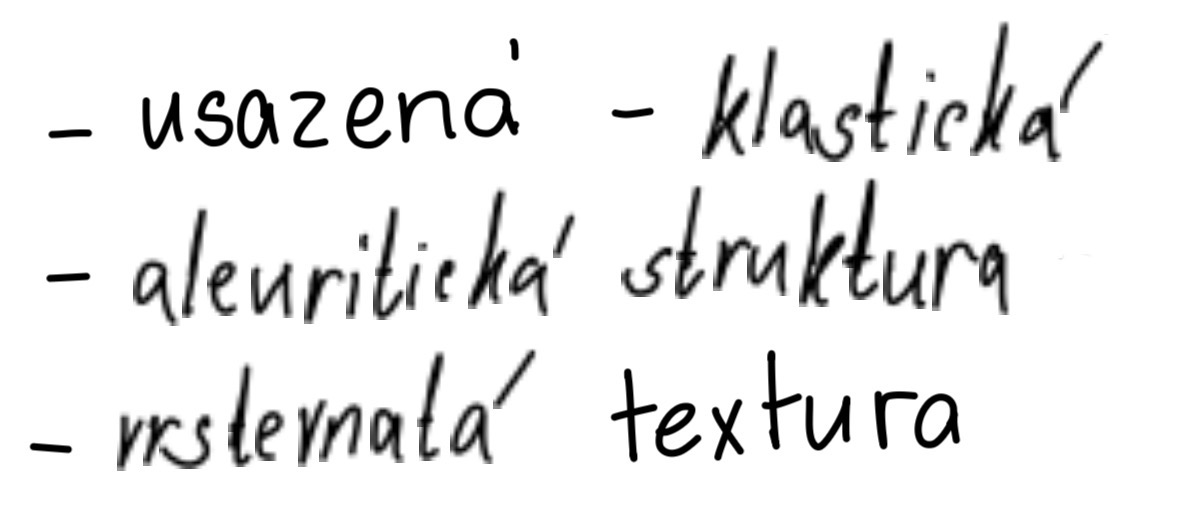 - usazená - klastická
- aleuritická struktura
- vrstevnatá textura